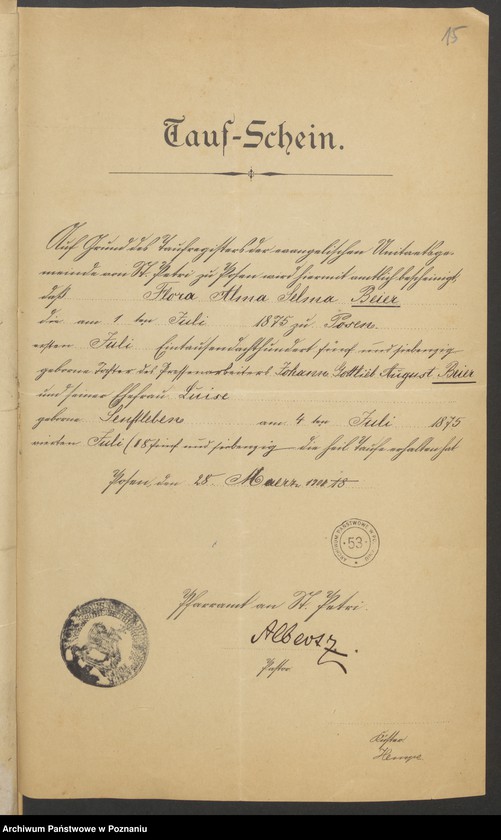 15
Tauf-Schein.
Auf Grund des Taufregisters der evangelischen Unitaetsge-
meinde von St. Petri zu Posen wird hiermit amtlich bescheinigt,
daß Flora Alma Selma Beier
die am 1 ten Juli 1875 zu Posen
ersten Juli Eintausendachthundert fünf und siebenzig
geborne Tochter des Johann Gottlieb August Beier
und seiner Ehefrau Luise
geborne Senftleben am 4 ten Juli 1875
vierten Juli (18 fünf und siebenzig die heil Taufe erhalten hat
Posen, den 28. Maerz
ARCHIWUM PAŃSTWOWE
53
Pfarramt an St. Petri.
Albertz.
Pastor
Küster
Archiwum Państwowe w Poznaniu